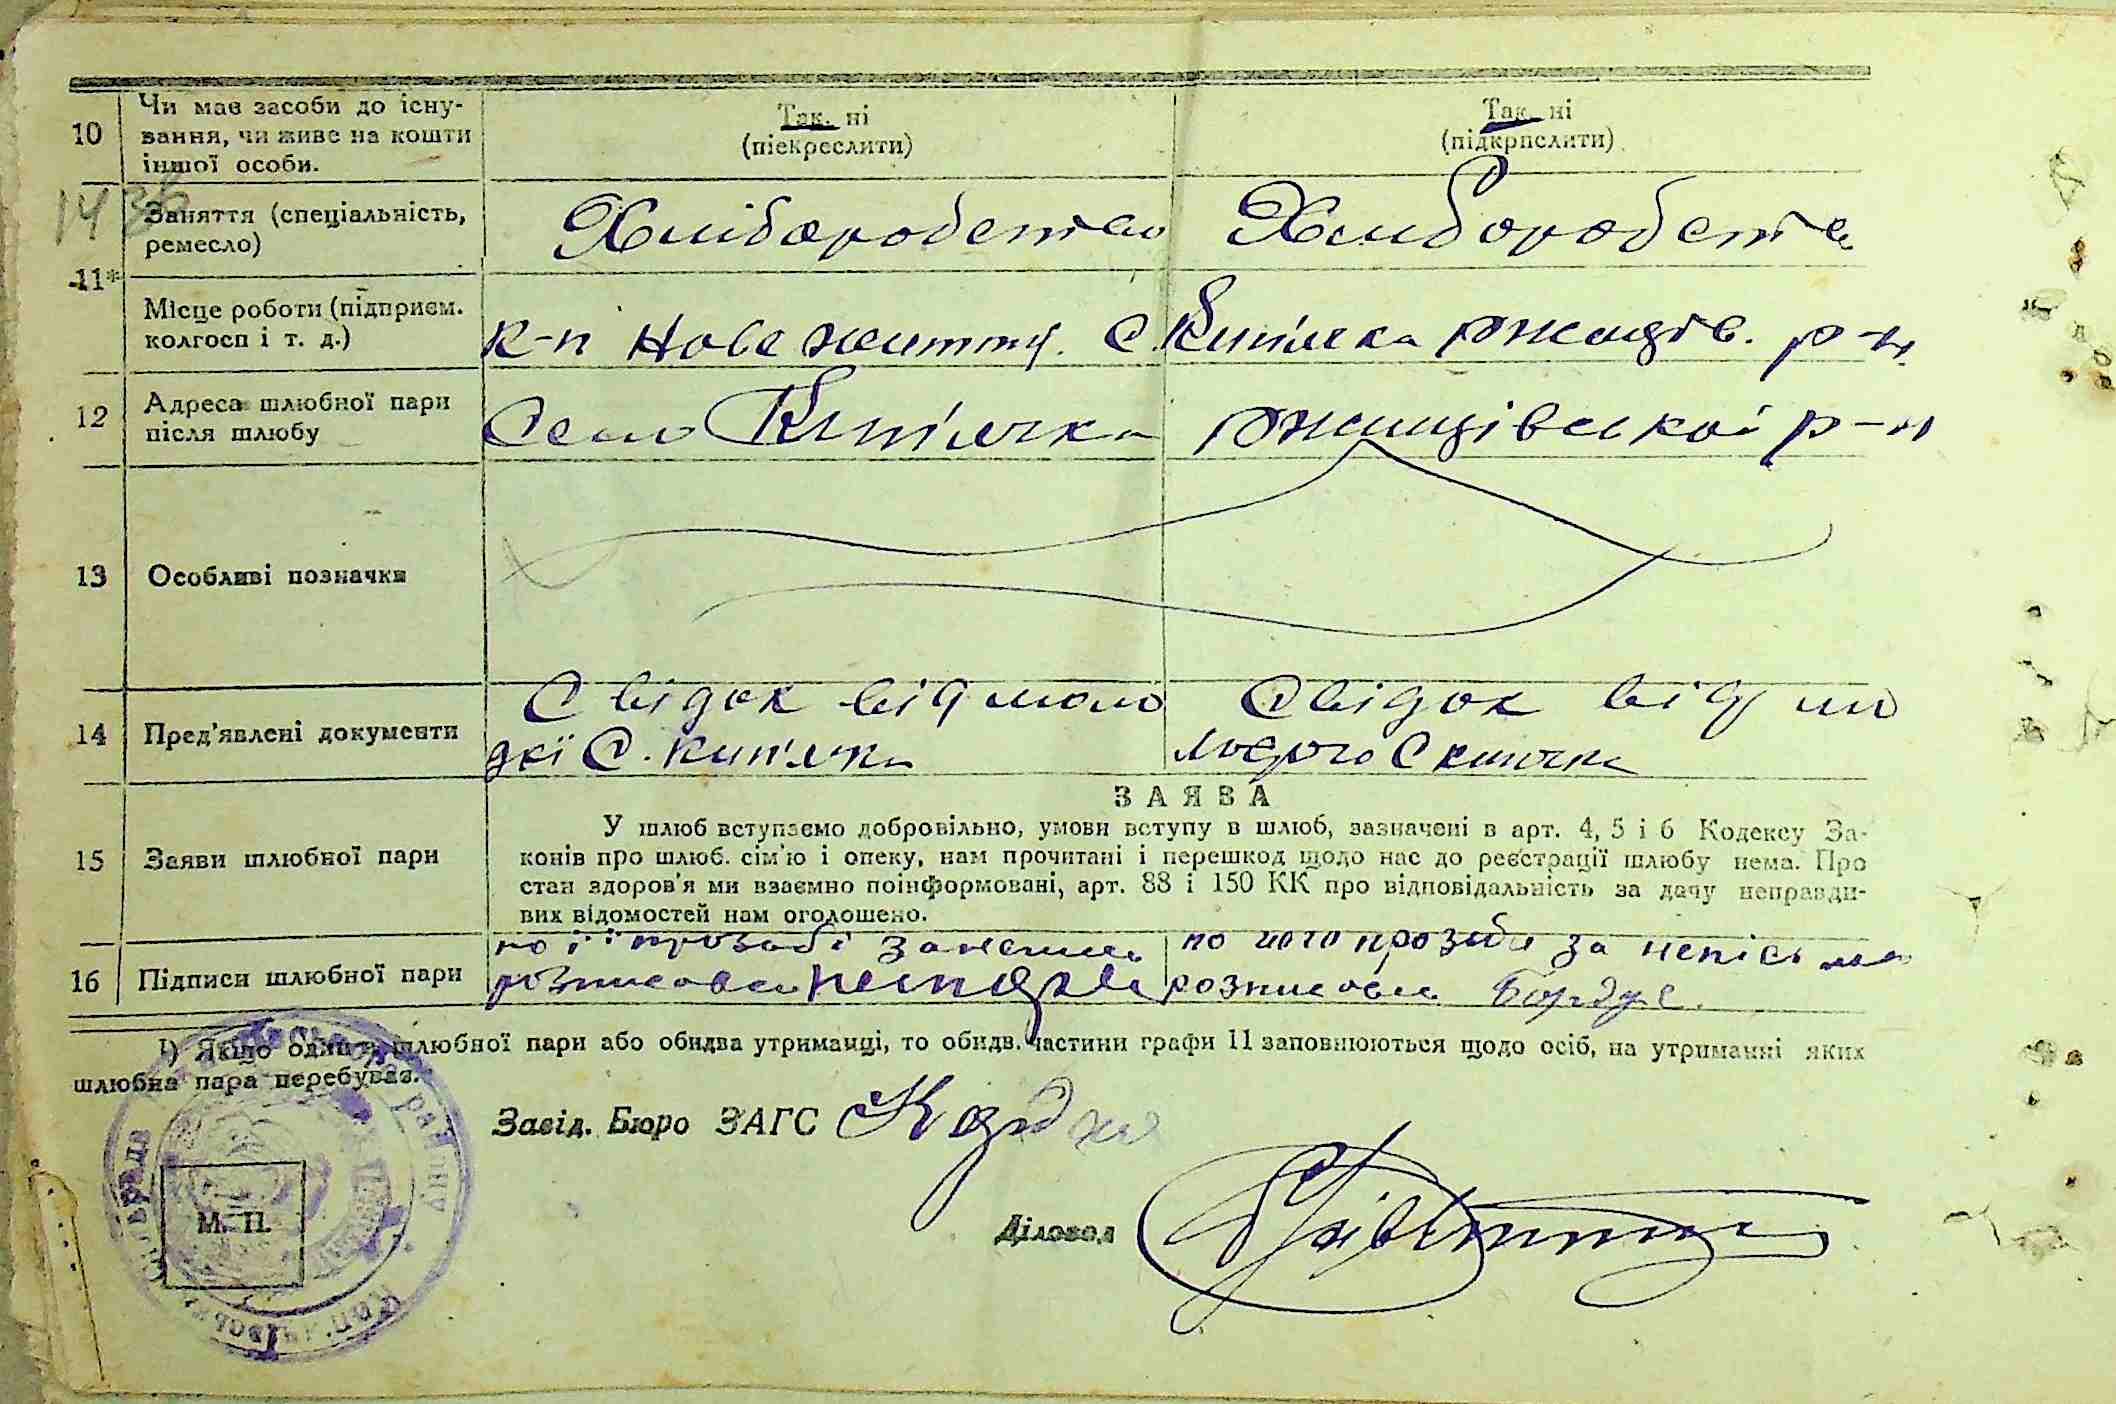 10 Чи має засоби до існу-
вання, чи живе на кошти
іншої особи.
Так. ні
(піекреслити)
Так. ні
(підкрпслити)
1436
11* Заняття (спеціальність,
ремесло)
Хліборобство
Хліборобств
Місце роботи (підприєм.
колгосп і т. д.)
к-п Нове життя. С. Кип'ячка Ржищів. р-н
12 Адреса шлюбної пари
після шлюбу
Село Кип'ячка Ржищівської р-н
13 Особливі позначки
14 Пред'явлені документи
Свідок від моло
дої С. Кип'ячка
Свідок від мо
лодого С Кипячка
15 Заяви шлюбної пари
ЗАЯВА
У шлюб вступаємо добровільно, умови вступу в шлюб, зазначені в арт. 4, 5 і 6 Кодексу За-
конів про шлюб. сім'ю і опеку, нам прочитані і перешкод щодо нас до реєстрації шлюбу нема. Про
стан здоров'я ми взаємно поінформовані, арт. 88 і 150 КК про відповідальність за дачу неправди-
вих відомостей нам оголошено.
16 Підписи шлюбної пари
по її прозьбі за непись
розписовся
по його прозьби за непісьм
розписовсь
1) Якщо один з шлюбної пари або обидва утриманці, то обидв. частини графи 11 заповнюються щодо осіб, на утриманні яких
шлюбна пара перебуває.
Завід. Бюро ЗАГС
Діловод
М. П.